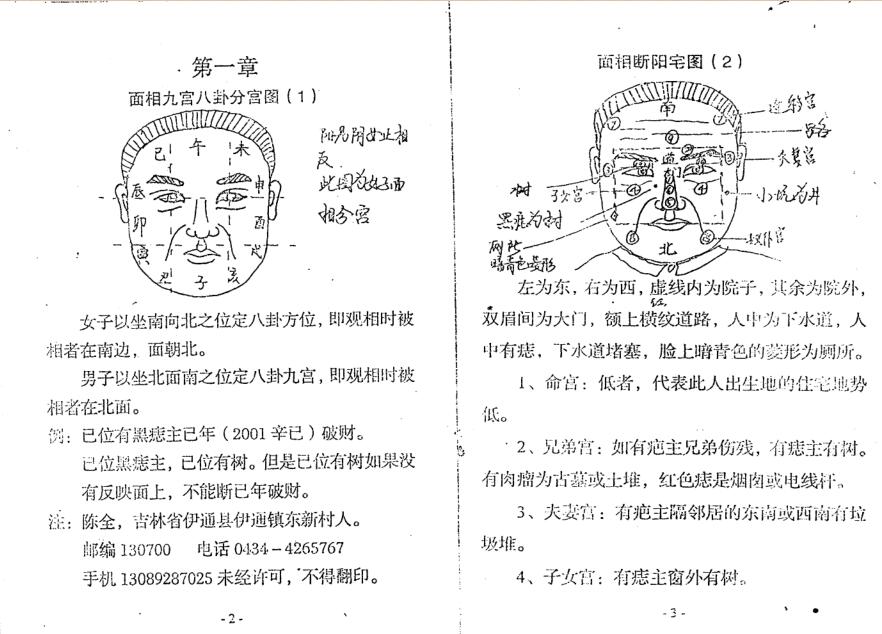 第一章
面相九宫八卦分宫图（1）
巳 午 未
辰 申
卯 酉
寅 戌
丑 子 亥
相
反
此图为女子面
相分宫
女子以坐南向北之位定八卦方位，即观相时被
相者在南边，面朝北。
男子以坐北面南之位定八卦九宫，即观相时被
相者在北面。
例：已位有黑痣主已年（2001 辛已）破财。
已位黑痣主，已位有树。但是已位有树如果没
有反映面上，不能断已年破财。
注：陈全，吉林省伊通县伊通镇东新村人。
邮编 130700 电话 0434－4265767
手机 13089287025 未经许可，不得翻印。
- 2 -
面相断阳宅图（2）
南
迁移宫
道
夫妻宫
门
树
子女宫
小坑为井
黑痣为树
奴仆宫
厕所
北
暗青色菱形
左为东，右为西，虚线内为院子，其余为院外，
红
双眉间为大门，额上横纹道路，人中为下水道，人
中有痣，下水道堵塞，脸上暗青色的菱形为厕所。
1、命宫：低者，代表此人出生地的住宅地势
低。
2、兄弟宫：如有疤主兄弟伤残，有痣主有树。
有肉瘤为古墓或土堆，红色痣是烟囱或电线杆。
3、夫妻宫：有疤主隔邻居的东南或西南有垃
圾堆。
4、子女宫：有痣主窗外有树。
- 3 -